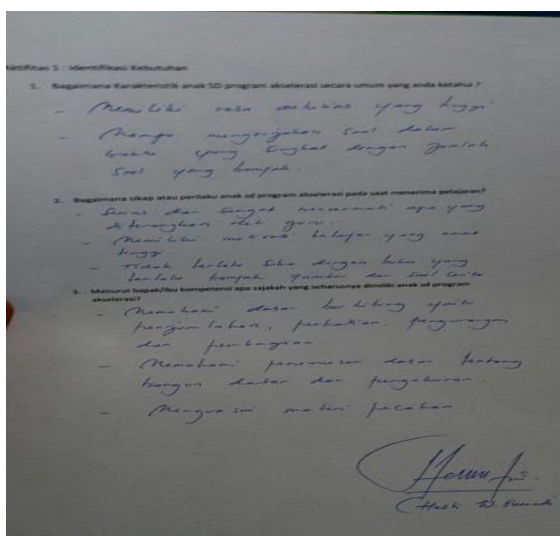 Aktifitas 1 : Identifikasi Kebutuhan
1. Bagaimana Karakteristik anak SD program akselerasi secara umum yang anda ketahui ?
- Memiliki rasa antusias yang tinggi
- Mampu mengerjakan soal dalam
waktu yang singkat dengan jumlah
soal yang banyak.
2. Bagaimana sikap atau perilaku anak sd program akselerasi pada saat menerima pelajaran?
- Serius dan sangat mencermati apa yang
diterangkan oleh guru.
- Memiliki motivasi belajar yang amat
tinggi
- Tidak terlalu suka dengan buku yang
terlalu banyak gambar dan soal cerita
3. Menurut bapak/ibu kompetensi apa sajakah yang seharusnya dimiliki anak sd program
akselerasi?
- Memahami dasar berhitung yaitu
penjumlahan, perkalian, pengurangan
dan pembagian
- Memahami perumusan dasar tentang
bangun datar dan pengukuran.
- Menguasai materi pecahan.